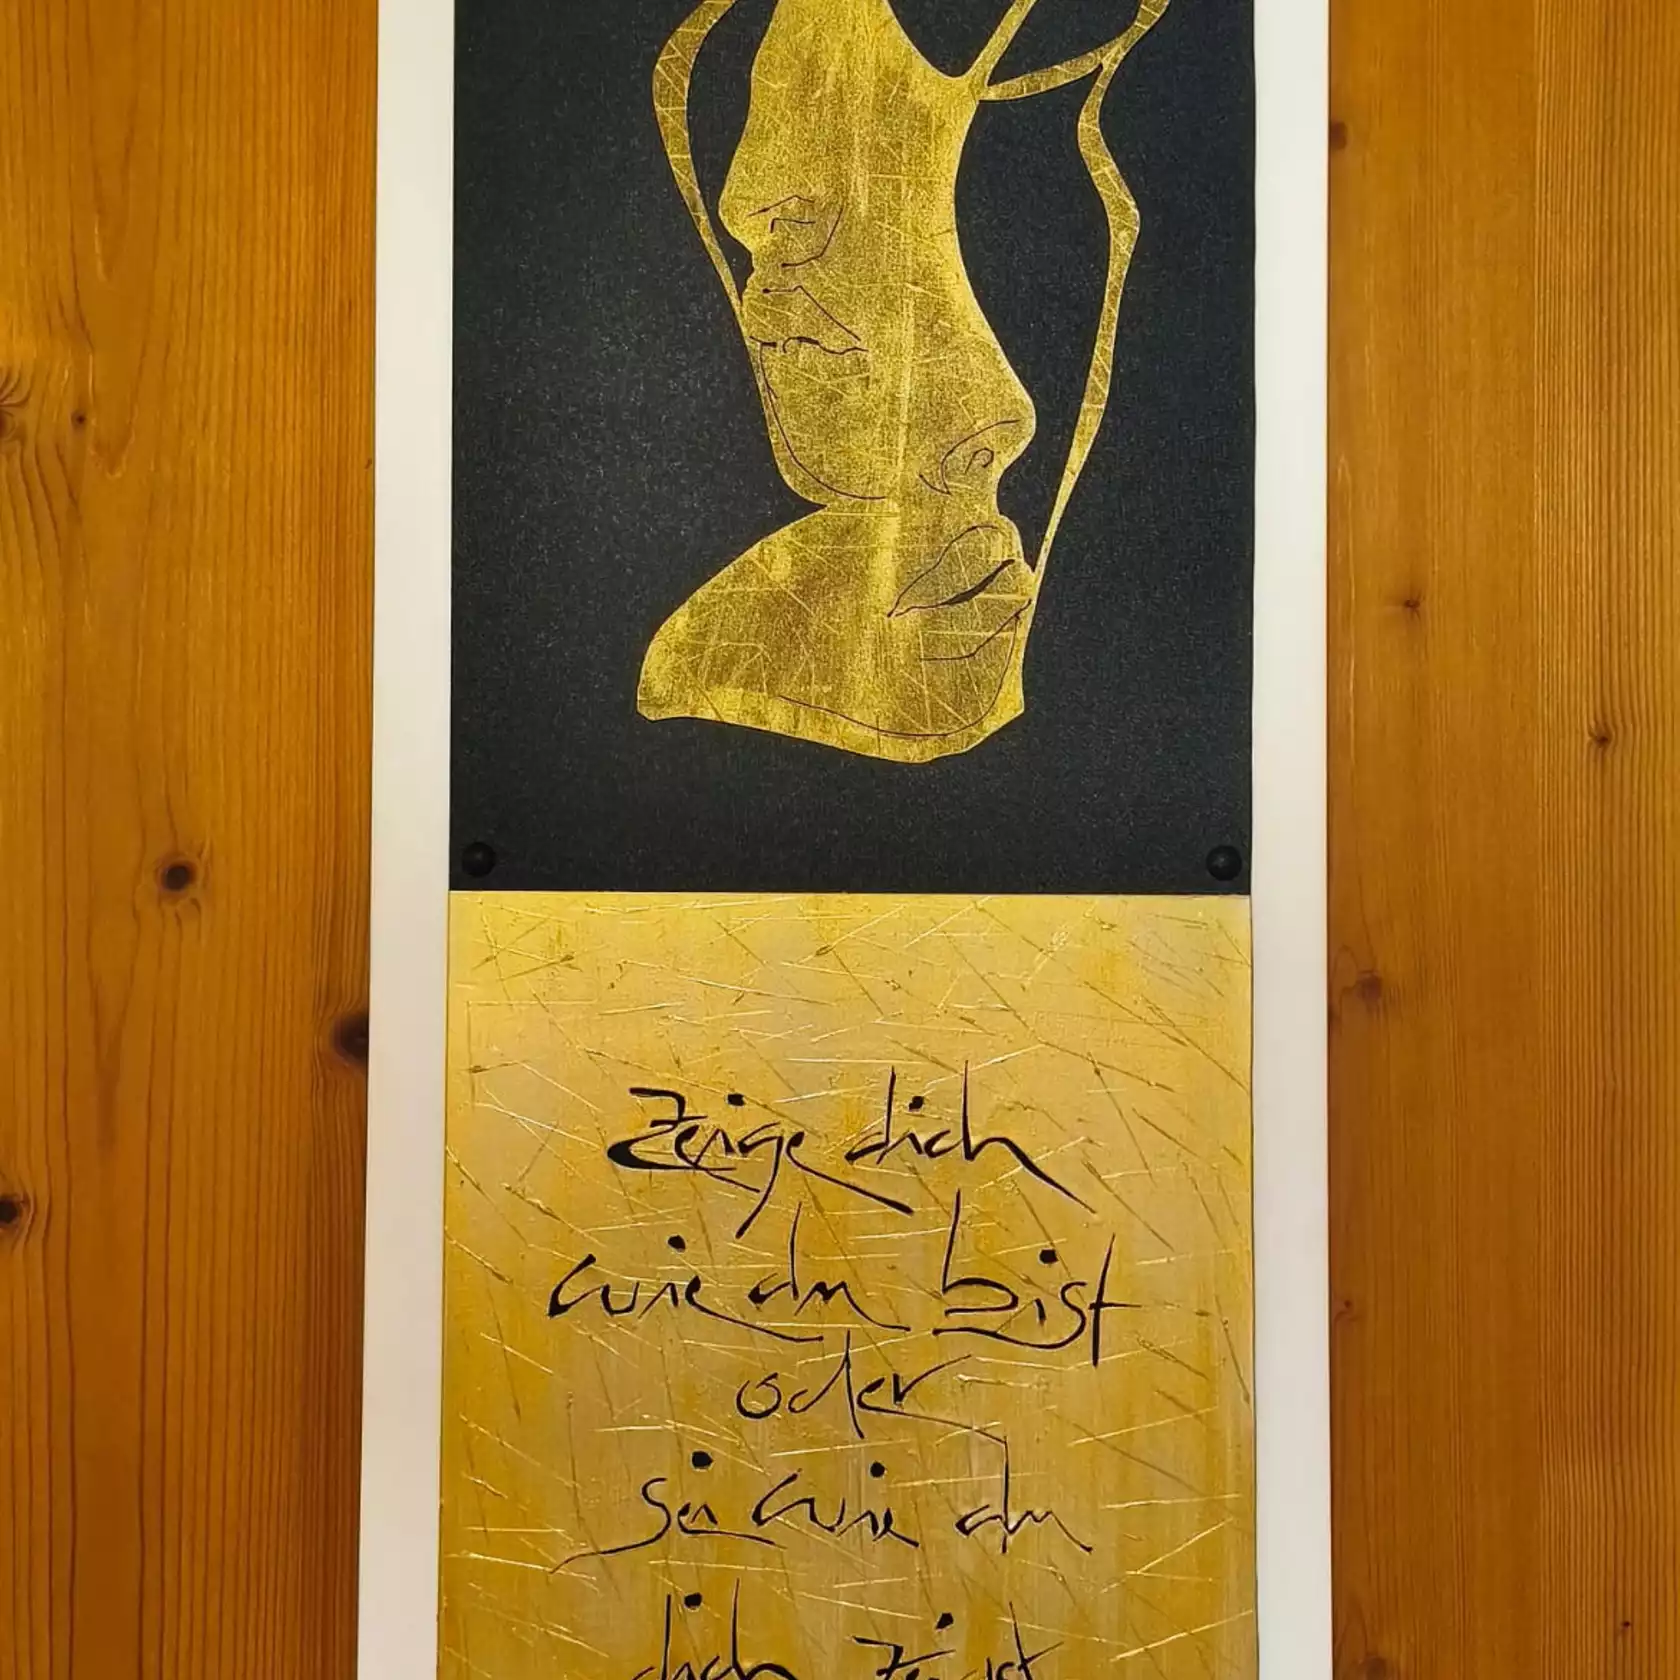 Zeige dich
wie du bist
oder
sei wie du
dich zeigst